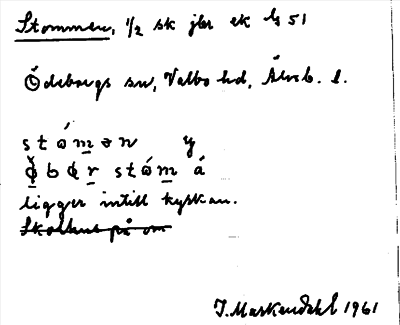 Stommen, 1/2 sk jbr ek bl 51
Ödeborgs sn, Valbo hd, Älvsb. l.
stómən y
bør stóm á
ligger intill kyrkan.
på om
J. Markendahl 1961